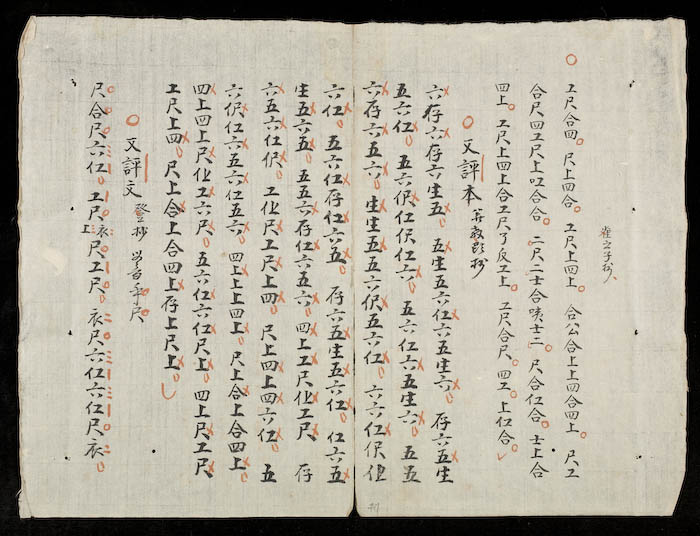 工尺合四。尺上四合。工尺上四上。合公合上上四合四上。尺工
合尺四工尺上吅合合。二尺二士合唉士二。尺合仜合。士上合
四上。工尺上四上合工尺了反工上。工尺合尺。四工。上仜合。
又評本
六存六存六生五。五生五六仜六五生六。存六五生
五六仜。五六伬仜伬仜六。五六仜六五生六。五五
六存六五六。生生五五六伬五六仜。六六仜伬仩
六仜。五六仜存仜六五。存六五生五六仜。仜六五
生五六五。五五六存仜六五六。四上工尺仩工尺。存
六五六仜伬。工仩尺工尺上四。尺上四上四六仜。五
六伬仜六五六仜五六。四上上四上。尺上合上合四上
四上四上尺仩工六尺。五六仜六仜尺上。四上尺工尺
工尺上四。尺上合上合四上存上尺上。
又評文
尺合尺六仜。工尺上衣尺工尺。衣尺六仜六仜尺衣。